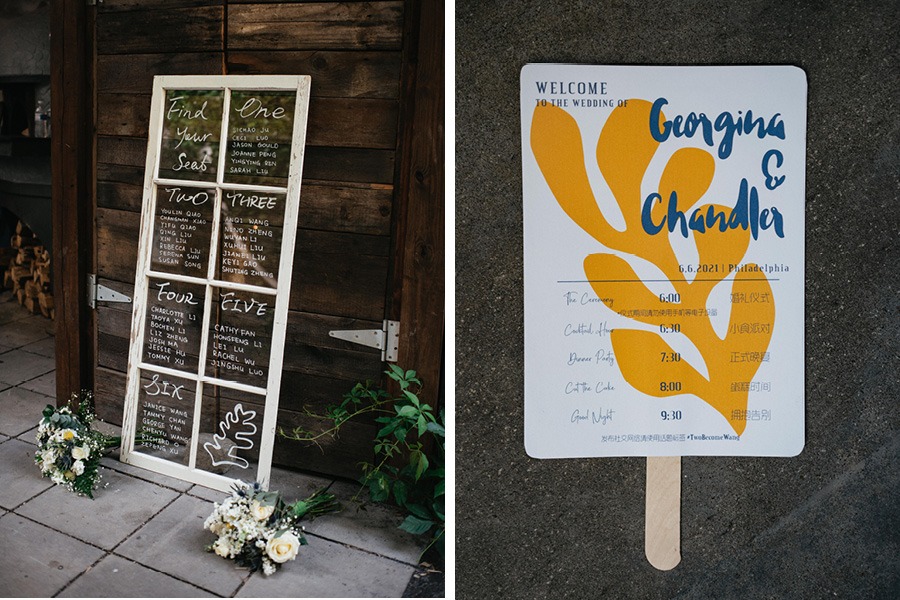 Find
Your
Seat
One
SICHAO JU
CECI LUO
JASON GOULD
JOANNE PENG
YINGYING REN
SARAH LI
TWO
YOULIN QUO
CHANGMAN XIAO
TIFU QIAO
QING LIU
XIN LIU
REBECCA LIU
SERENA SUN
SUSAN SONG
THREE
ANQI WANG
NENO ZHENG
WUYAN LI
XUHUI LIU
JIAWEI LIU
KEYI GAO
SHUTING ZHENG
FOUR
CHARLOTTE LI
TAOYA XU
BOCHEN LI
LIZ ZHENG
JOSH MA
JESSIE HU
TOMMY XU
FIVE
CATHY FAN
HONGFENG LI
LEI LU
RACHEL WU
JINGSHU LUO
SIX
JANICE WANG
TAMMY CHAN
GEORGE YAN
CHENYU WANG
RICHARD O
ZEFENG XU
WELCOME
TO THE WEDDING OF
Georgina
&
Chandler
6.6.2021 | Philadelphia
The Ceremony 6:00 婚礼仪式
Cocktail Hour 6:30 小食派对
Dinner Party 7:30 正式晚宴
Cut the Cake 8:00 时间
Good Night 9:30 拥抱告别
发布社交网信请使用话题标签 #TwoBecomeWang